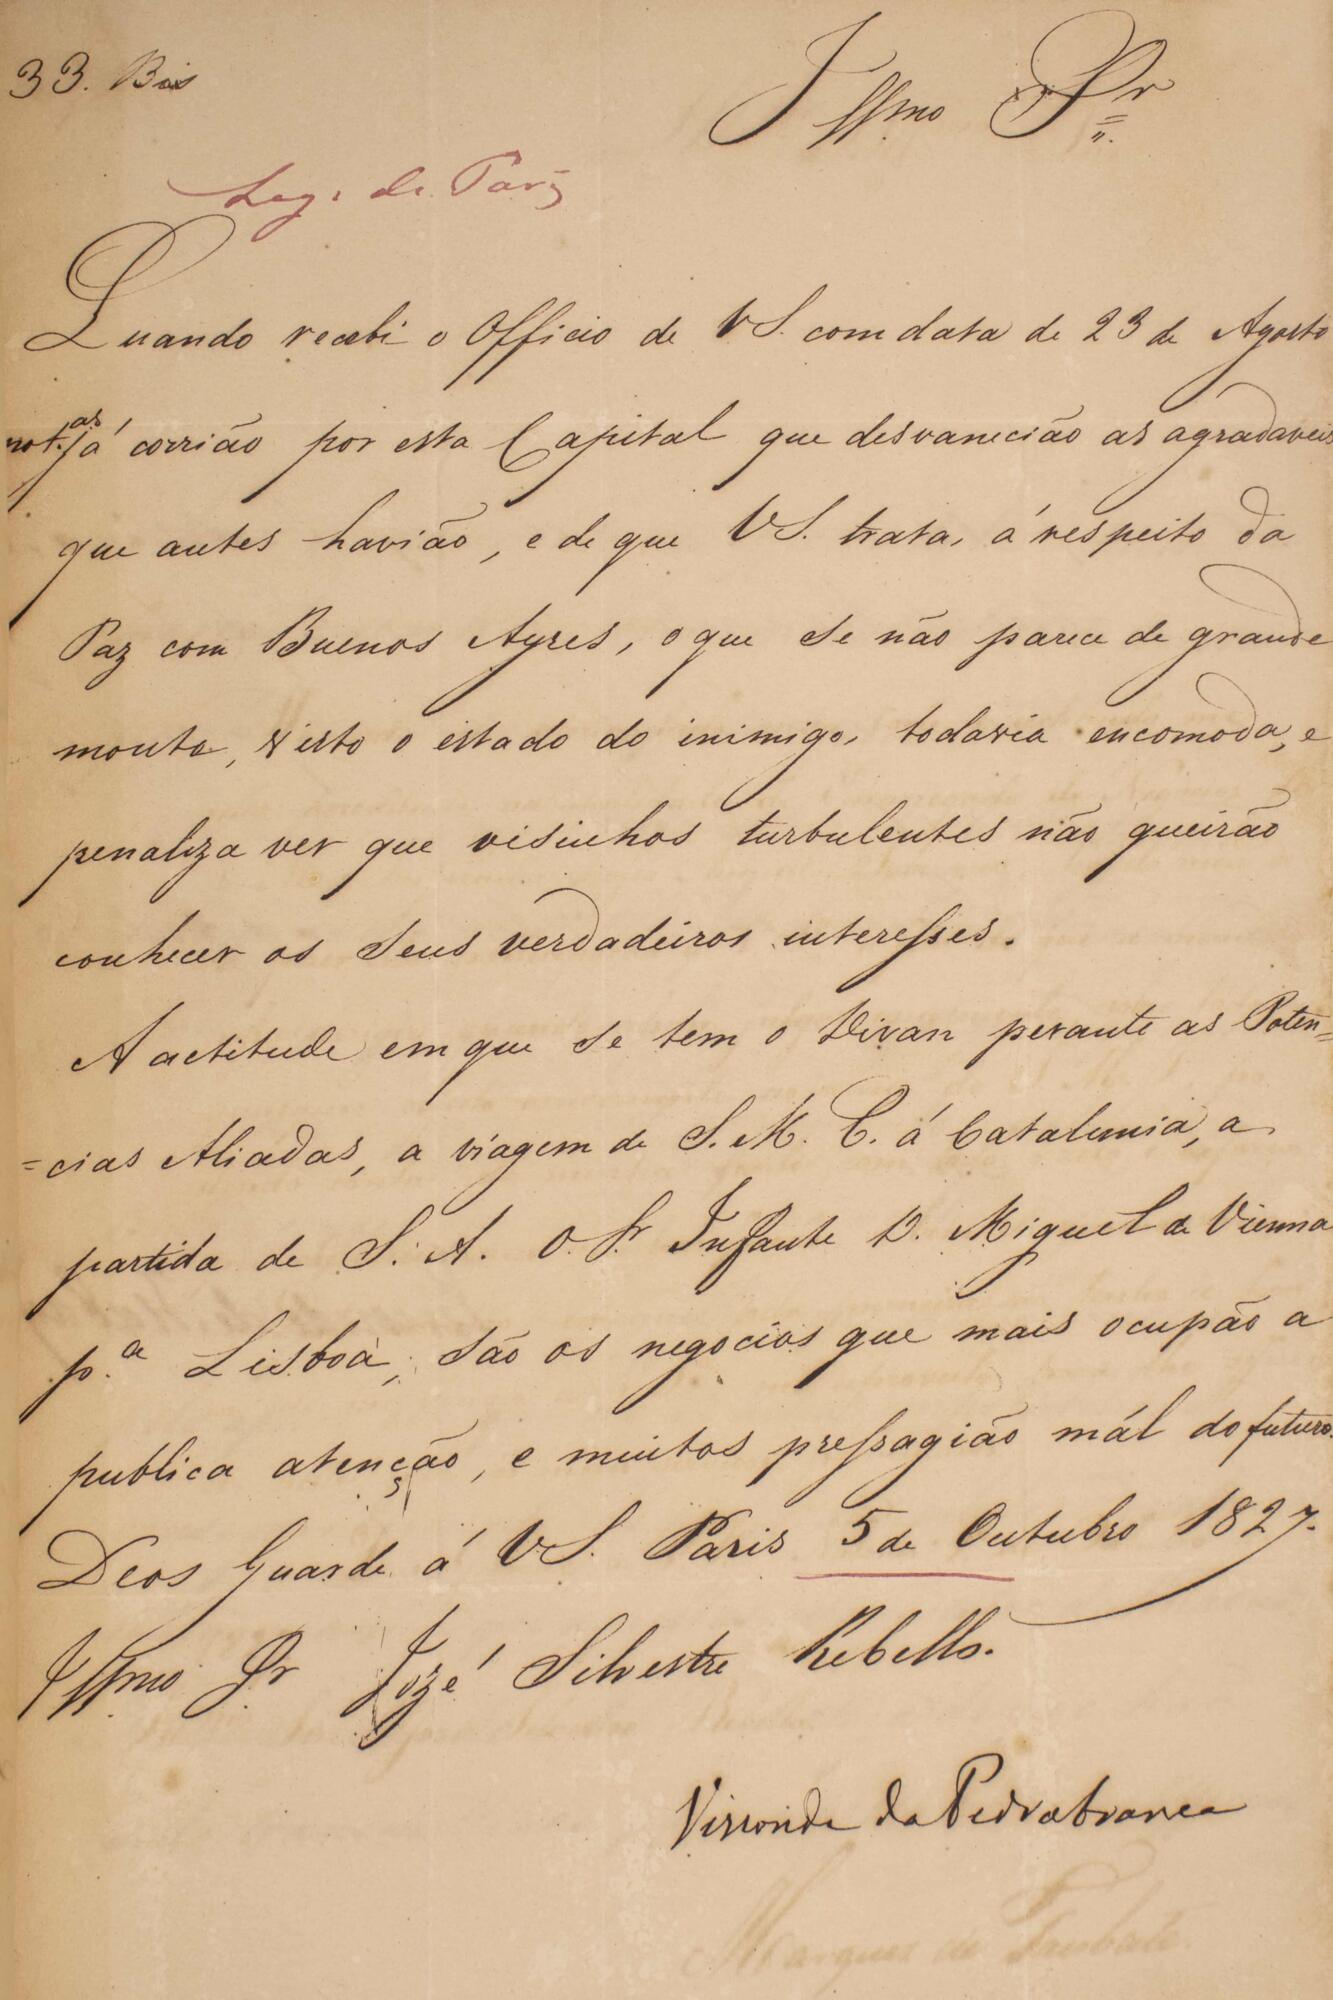 33. Bis
Illmo Sr
Leg. de Pariz
Quando recebi o Officio de VS. com data de 23 de Agosto
not.as já corrião por esta Capital que desvanecião as agradaveis
que antes havião, e de que VS. trata, á respeito da
Paz com Buenos Ayres, o que se não parece de grande
monta, visto o estado do inimigo, todavia encomoda, e
penaliza ver que visinhos turbulentes não queirão
conhecer os seus verdadeiros interesses.
A actitude em que se tem o Divan perante as Poten=
=cias Aliadas, a viagem de S. M. C. á Catalunia, a
partida de S. A. O Sr Infante D. Miguel de Vienna
p.a Lisboa, são os negocios que mais ocupão a
publica atenção, e muitos pressagião mál do futuro.
Deos Guarde á VS. Paris 5 de Outubro 1827.
Illmo Sr Jozé Silvestre Rebello.
Visconde da Pedrabranca